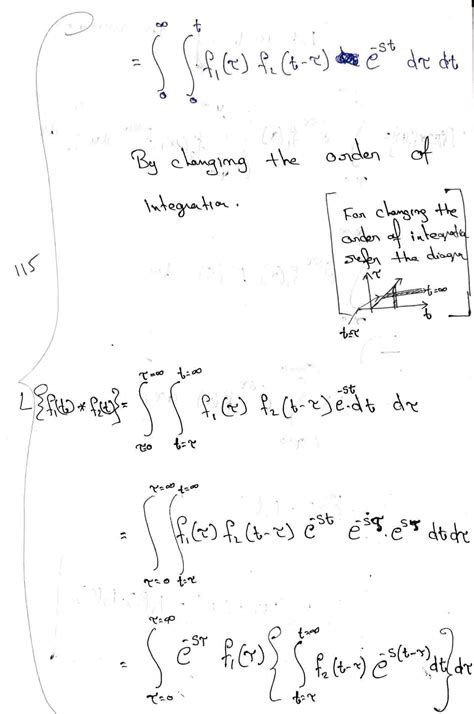 = ∫₀^∞ ∫₀^t f₁(τ) f₂(t-τ) e^{-st} dτ dt
By changing the order of
Integration.
For changing the
order of integratio
refer the diagra
τ
t=∞
t
t=τ
115
L{f₁(t) * f₂(t)} = ∫_{τ=0}^{τ=∞} ∫_{t=τ}^{t=∞} f₁(τ) f₂(t-τ) e^{-st}.dt dτ
= ∫_{τ=0}^{τ=∞} ∫_{t=τ}^{t=∞} f₁(τ) f₂(t-τ) e^{-st} e^{-sτ}.e^{sτ} dt dτ
= ∫_{τ=0}^{τ=∞} e^{-sτ} f₁(τ) { ∫_{t=τ}^{t=∞} f₂(t-τ) e^{-s(t-τ)} dt } dτ